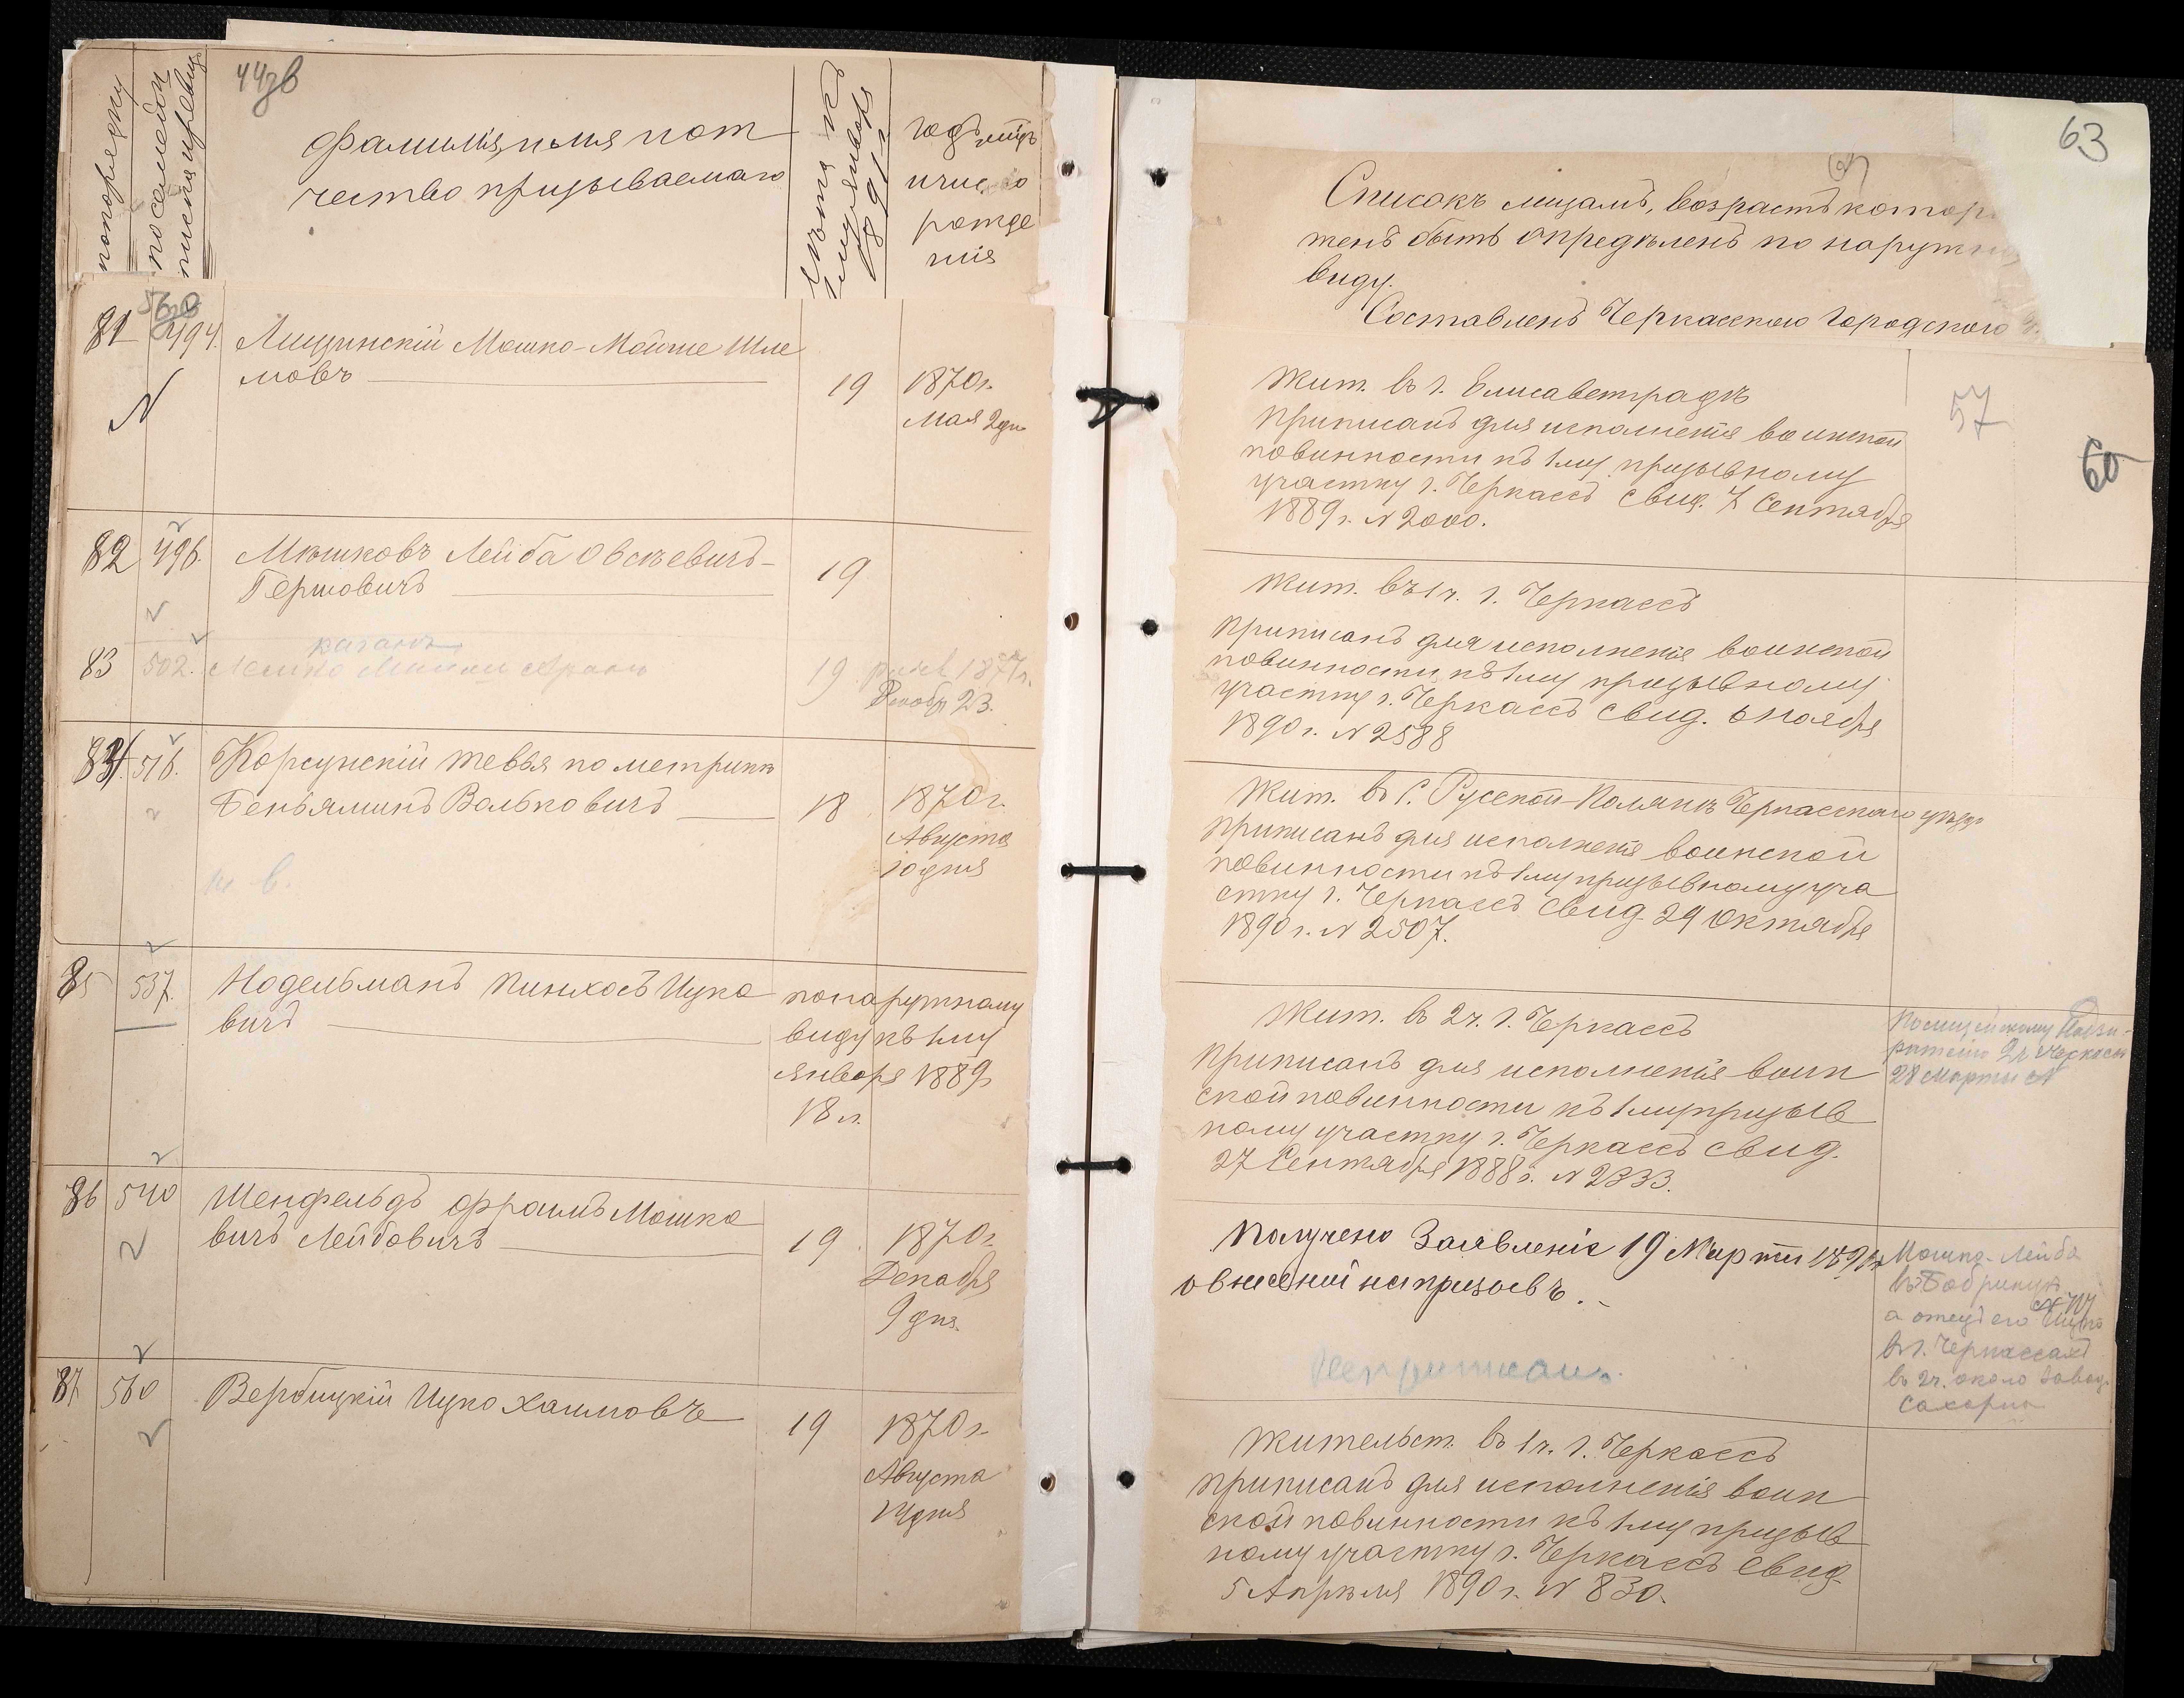 по порядку
по семейн
писка призыв
44зв
Фамилія, имя и от
чество призываемаго
Лѣта къ
1 му января
1891 г
годъ мѣць
и число
рожде
нія
81
494.
Лищинскій Мошко-Мойше Шле
мовъ
19
1870 г.
Мая 2 дн
N
82
496.
Мѣшковъ Лейба Овсѣевичъ-
Гершовичъ
19
83
502.
19
1871 г.
Декабр 23.
84
516.
Корсунскій Тевья по метрикѣ
Беньяминъ Вольковичъ
18
1870 г.
Августа
10 дня
85
537.
Нодельманъ Пинхосъ Ицко
вичъ
по наружному
виду къ 1 му
января 1889 г
18 л.
86
540
Шенфельдъ Фроимъ Мошко
вичъ Лейбовичъ
19.
1870 г.
Декабря
9 дня.
87
560
Вербицкій Ицко Хаимовъ
19
1870 г.
Августа
14 дня
63
Списокъ лицамъ, возрастъ котор
женъ быть опредѣленъ по наружн
виду.
Составленъ Черкасскою Городскою
57
60
Жит. въ г. Елисаветградѣ
приписанъ для исполненія воинской
повинности къ 1 му призывному
участку г. Черкассъ свид. 7 Сентября
1889 г. N 2000.
Жит. въ 1 ч. г. Черкассъ
приписанъ для исполненія воинской
повинности къ 1 му призывному
участку г. Черкассъ свид. 6 Ноября
1890 г. N 2588
Жит. въ С. Русской-Полянѣ Черкасскаго уѣзда
приписанъ для исполненія воинской
повинности къ 1 му призывному уча
стку г. Черкассъ свид. 29 Октября
1890 г. N 2507.
Жит. въ 2 ч. г. Черкассъ
приписанъ для исполненія воин
ской повинности къ 1 му призыв
ному участку г. Черкассъ свид.
27 Сентября 1888 г. N 2333.
Полицейскому Надзи-
рателю 2 ч Черкассъ
28 Марта N
Получено Заявленіе 19 Марта 1891 г
о внесеніи на призывъ.
Неприписанъ.
Мошко-Лейба
а отецъ его Ицко
въ г. Черкассахъ
въ 2 ч. около завод.
сахарн
Жительст. въ 1 ч. г. Черкассъ
приписанъ для исполненія воин
ской повинности къ 1 му призыв
ному участку г. Черкассъ свид
5 Апрѣля 1890 г. N 830.